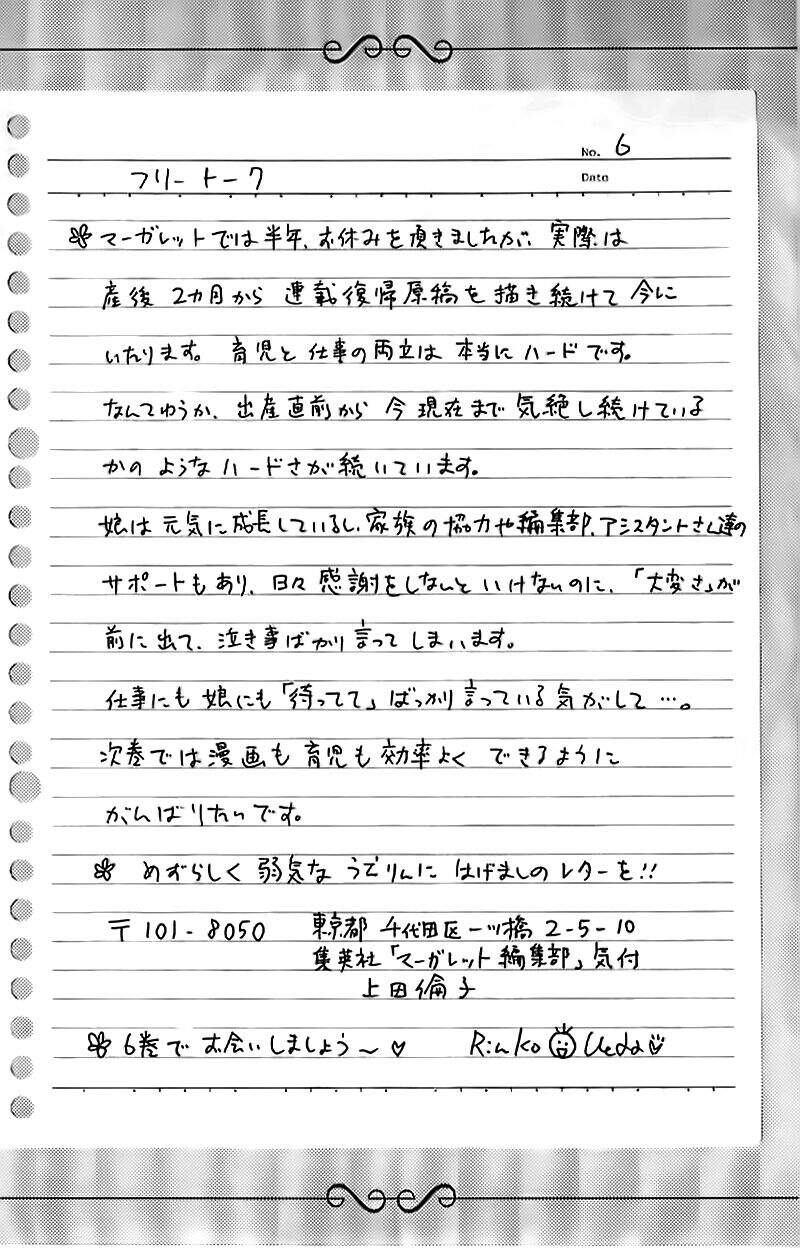 No. 6
フリートーク
Date
マーガレットでは半年、お休みを頂きましたが、実際は
産後 2カ月から 連載復帰原稿を描き続けて今に
いたります。 育児と仕事の両立は 本当にハードです。
なんてゆうか、出産直前から 今現在まで気絶し続けている
かのようなハードさが続いています。
娘は元気に成長しているし、家族の協力や編集部、アシスタントさん達の
サポートもあり、日々感謝をしないといけないのに、「大変さ」が
前に出て、泣き事ばかり言ってしまいます。
仕事にも娘にも「待ってて」ばっかり言っている気がして…。
次巻では漫画も育児も効率よく できるように
がんばりたいです。
めずらしく弱気な うえりんに はげましのレターを!!
〒101-8050 東京都 千代田区一ツ橋 2-5-10
集英社「マーガレット編集部」気付
上田倫子
6巻でお会いしましょう〜♡ Rinko Ueda